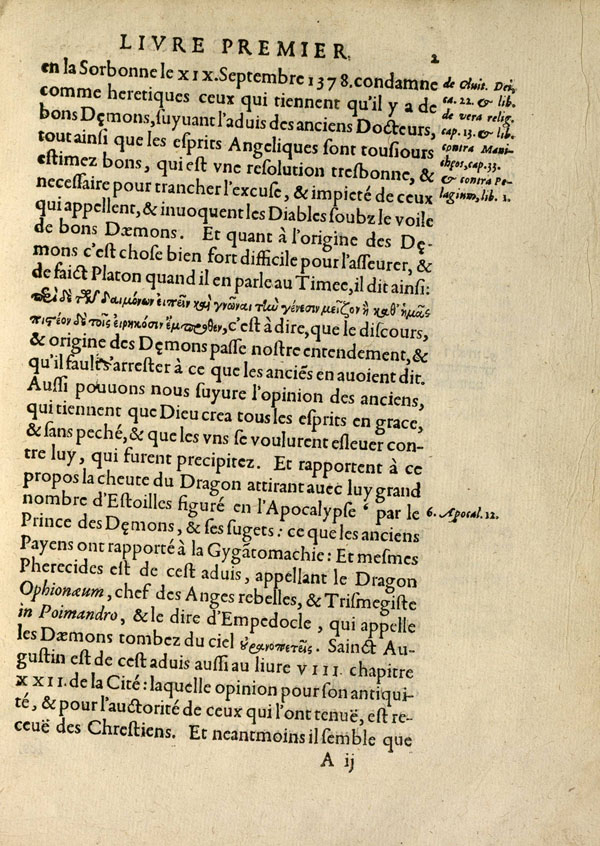 LIVRE PREMIER. 2
en la Sorbonne le XIX. Septembre 1378. condamne
comme heretiques ceux qui tiennent qu'il y a de
bons Dęmons, suyuant l'aduis des anciens Docteurs,
tout ainsi que les esprits Angeliques sont tousiours
estimez bons, qui est vne resolution tresbonne, &
necessaire pour trancher l'excuse, & impieté de ceux
qui appellent, & inuoquent les Diables soubz le voile
de bons Dæmons. Et quant à l'origine des Dę-
mons c'est chose bien fort difficile pour l'asseurer, &
de faict Platon quand il en parle au Timee, il dit ainsi:
δαιμόνων εἰπεῖν καὶ γνῶναι τὴν γένεσιν μεῖζον ἢ καθ' ἡμᾶς
πιστέον δὲ τοῖς εἰρηκόσιν ἔμπροσθεν, c'est à dire, que le discours,
& origine des Dęmons passe nostre entendement, &
qu'il fault s'arrester à ce que les anciés en auoient dit.
Aussi pouuons nous suyure l'opinion des anciens,
qui tiennent que Dieu crea tous les esprits en grace,
& sans peché, & que les vns se voulurent esleuer con-
tre luy, qui furent precipitez. Et rapportent à ce
propos la cheute du Dragon attirant auec luy grand
nombre d'Estoilles figuré en l'Apocalypse ⁶ par le
Prince des Dęmons, & ses sugets: ce que les anciens
Payens ont rapporté à la Gygãtomachie: Et mesmes
Pherecides est de cest aduis, appellant le Dragon
Ophionæum, chef des Anges rebelles, & Trismegiste
in Poimandro, & le dire d'Empedocle, qui appelle
les Dæmons tombez du ciel οὐρανοπετεῖς. Sainct Au-
gustin est de cest aduis aussi au liure VIII. chapitre
XXII. de la Cité: laquelle opinion pour son antiqui-
té, & pour l'auctorité de ceux qui l'ont tenuë, est re-
ceuë des Chrestiens. Et neantmoins il semble que
A ij
de Ciuit. Dei,
ca. 22. & lib.
de vera relig.
cap. 13. & lib.
contra Mani-
chęos, cap. 33.
& contra Pe-
lagium, lib. 1.
6. Apocal. 12.